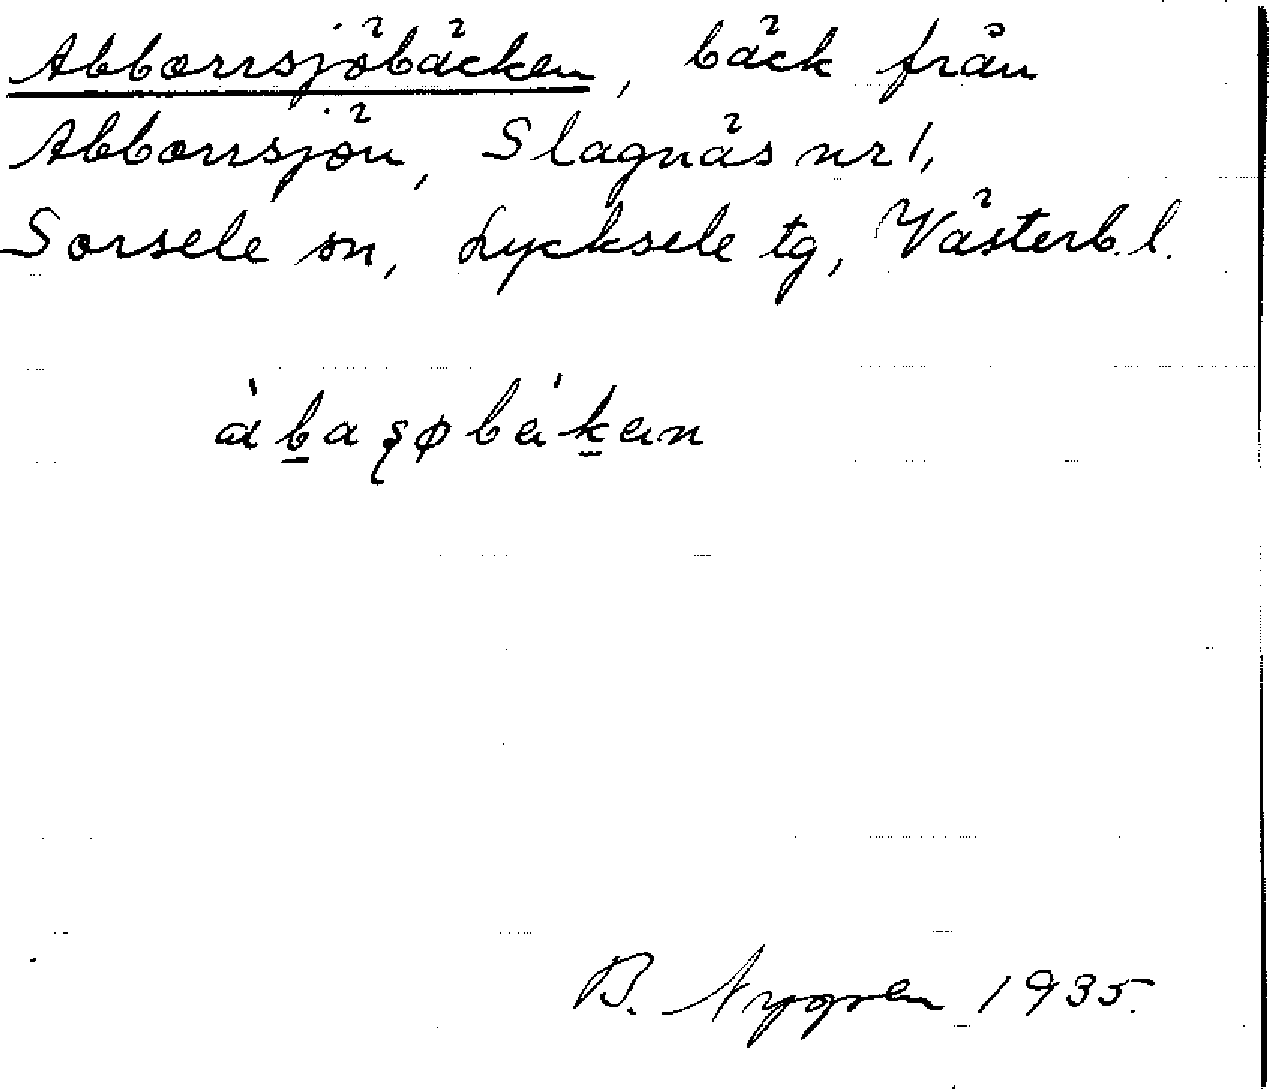 Abborrsjöbäcken, bäck från
Abborrsjön, Slagnäs nr 1,
Sorsele sn, Lycksele tg, Västerb. l.
B. Nygren 1935.